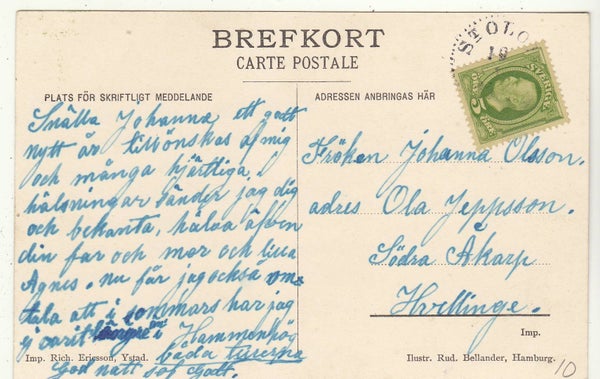 BREFKORT
CARTE POSTALE
STOLO
19
5 ÖRE
SVERIGE
PLATS FÖR SKRIFTLIGT MEDDELANDE
Snälla Johanna ett gott
nytt år tillönskas af mig
och många hjärtliga,
hälsningar sänder jag dig
och bekanta, hälsa äfven
din far och mor och lilla
Agnes. nu får jag också om-
tala att i sommars har jag
ej varit i Hammenhög
båda
God natt sof Gott.
ADRESSEN ANBRINGAS HÄR
Fröken Johanna Olsson.
adres Ola Jeppsson.
Södra Åkarp
Hvellinge.
Imp.
Imp. Rich. Ericsson, Ystad.
Illustr. Rud. Bellander, Hamburg.
10